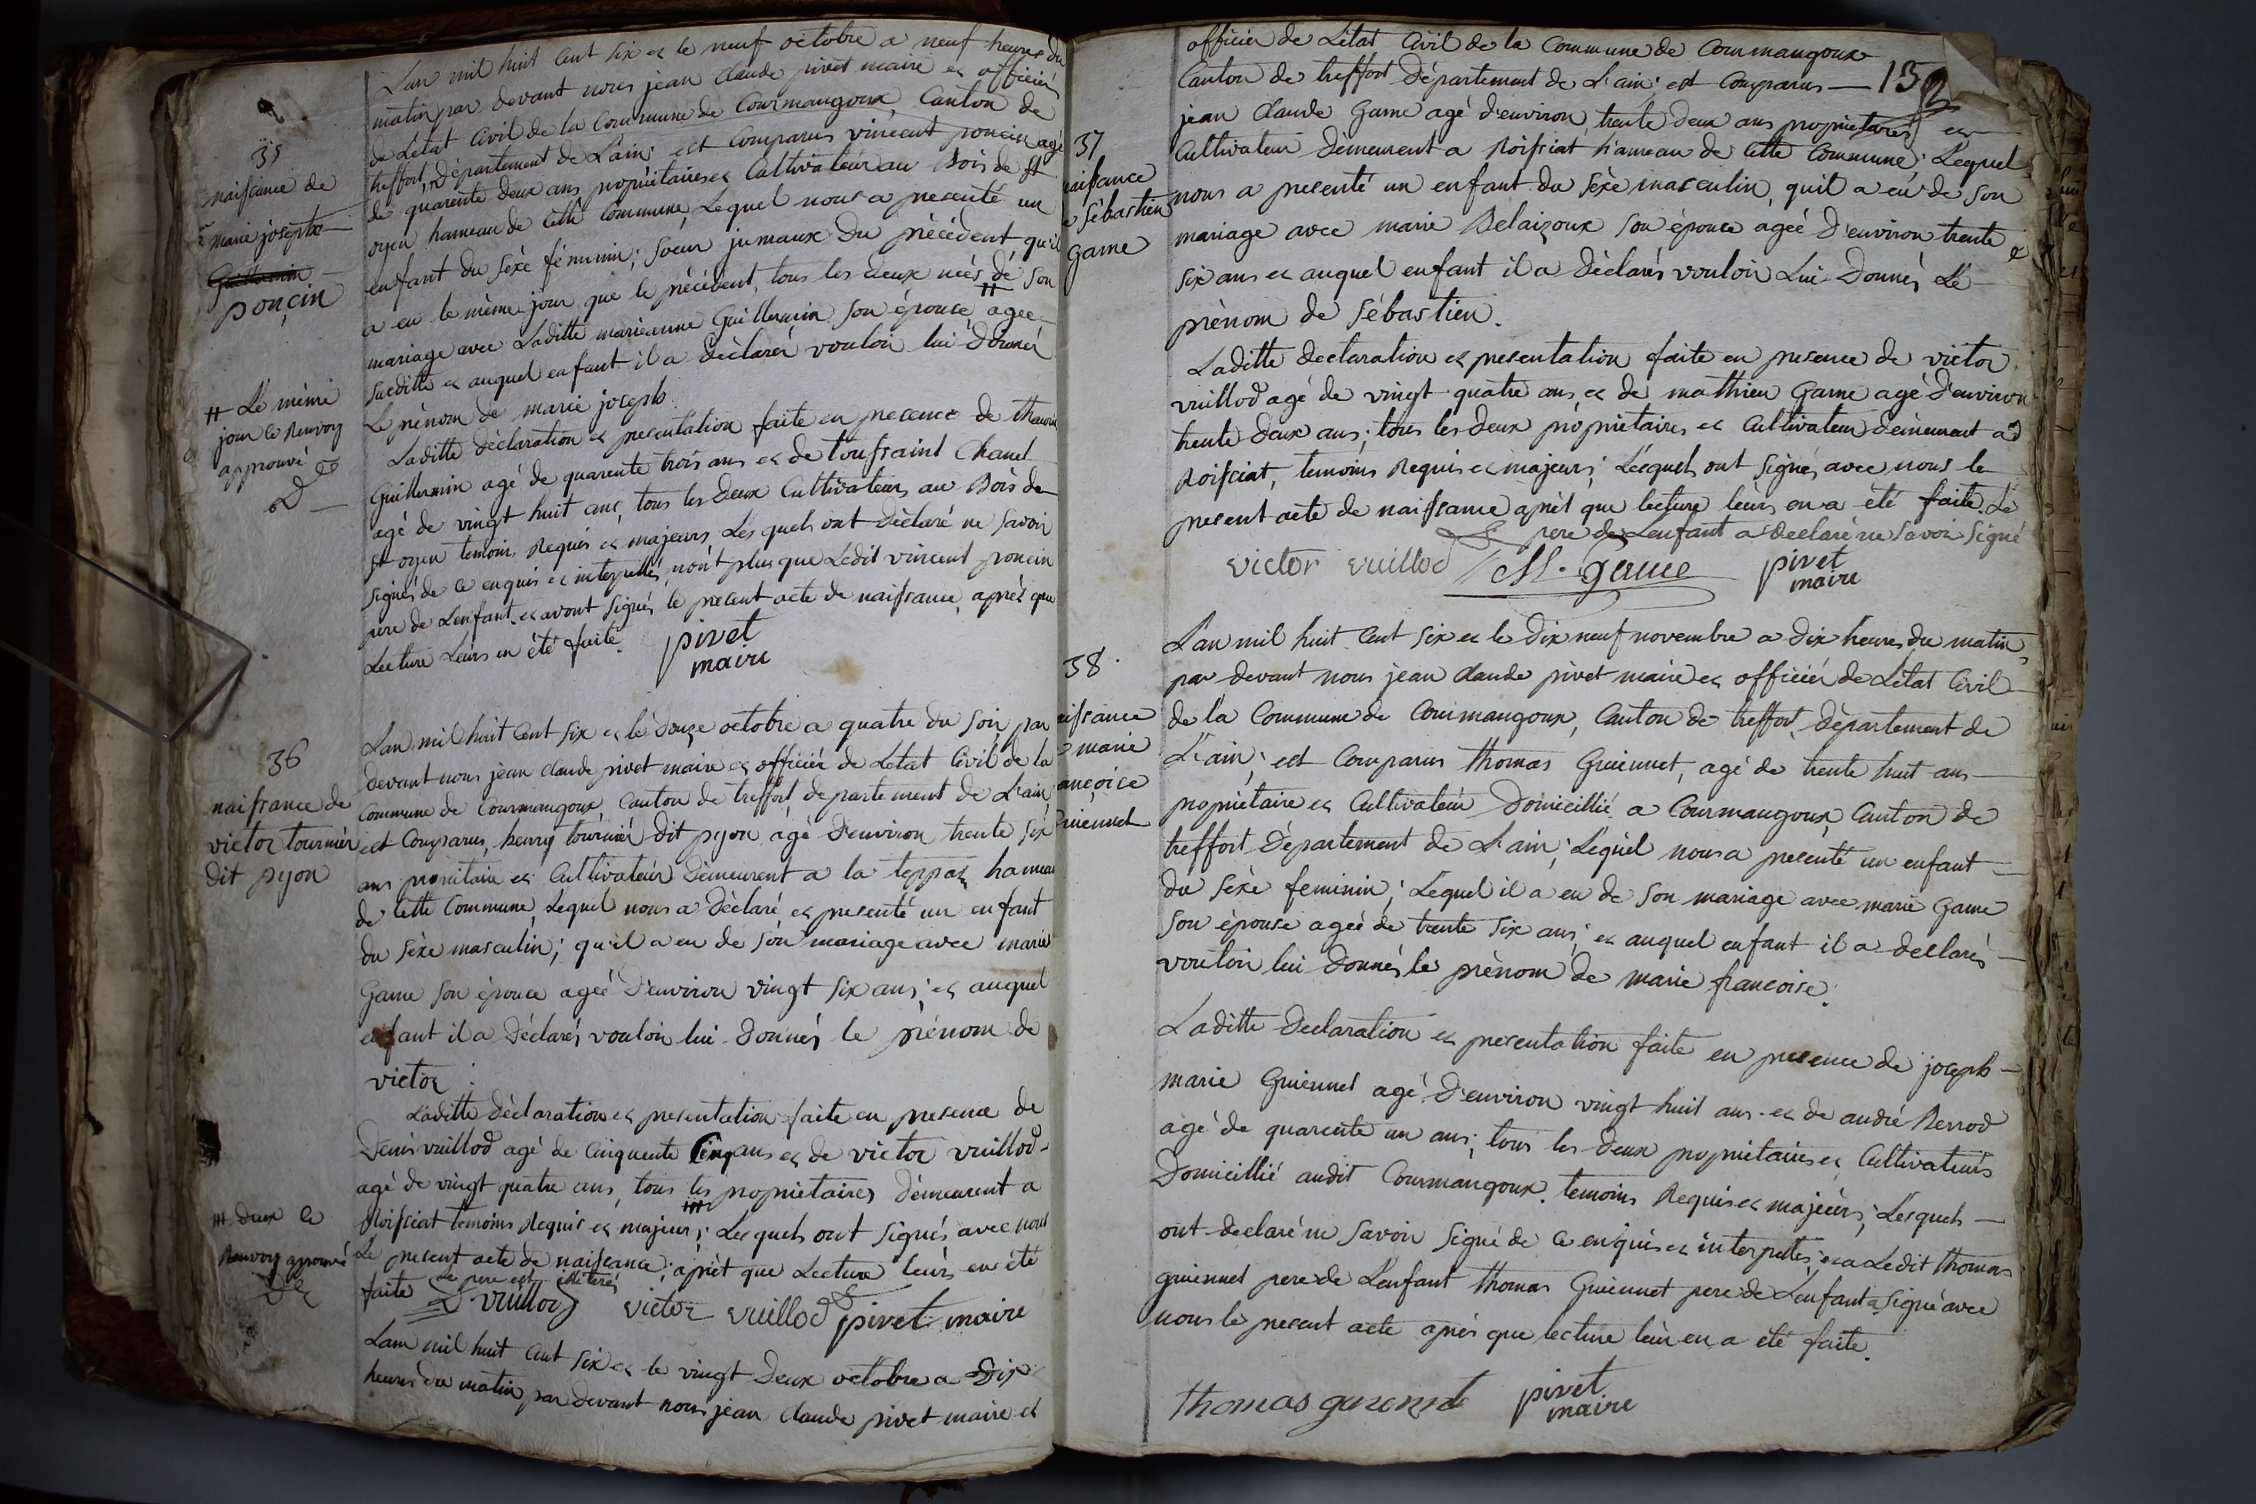 35
naissance de
marie josephe
Guillermin
ponçin
Lan mil huit Cent six et le neuf octobre a neuf heures du
matin par devant nous jean claude pivet maire et officiér
de Létat Civil de la Commune de Courmangoux Canton de
treffort, Département de L'ain; est Comparus vincent poncin agé
de quarente deux ans propriétaires et Cultivateur au Bois de st
oyen hameau de Cette Commune, Lequel nous a presenté un
enfant du séxe féminin; soeur jumaux du précédent qu'il
a eu le même jour que le précédent, tous les deux neés de son
mariage avec Laditte marieanne Guillermin son épouse, agee
suditte et auquel enfant il a déclarér vouloir lui donner
Le prénom de marie joseph.
Laditte déclaration et presentation faite en presence de
Guillermin agé de quarente trois ans et de toussaint Chanel
agé de vingt huit ans, tous les deux Cultivateurs au Bois de
st oyen temoins Requis et majeurs, Les quels ont déclaré ne savoir
signés de ce enquis et interpellés, non't plus que Ledit vincent poncin
pere de Lenfant. et avont signés le present acte de naissance, aprés que
Lecture Leurs en été faite.
pivet
maire
# Le même
jour ce Renvoy
approuvé
36
naissance de
victor tournier
dit pyon
Lan mil huit Cent six et le douze octobre a quatre du soir, par
devant nous jean claude pivet maire et officiér de Létat Civil de la
Commune de Courmangoux, Canton de treffort, département de L'ain,
est Comparus, henry tourniér dit pyon agé d'environ trente six
ans propritaire et Cultivateur demeurent a la teppaz hameau
de Cette Commune, Lequel nous a déclaré et presenté un enfant
du séxe masculin; qu'il a eu de son mariage avec marie
Game son épouce ageé d'environ vingt six ans; et auquel
enfant il a déclarés vouloir lui donnés le prénom de
victor.
Laditte déclaration et presentation faite en presence de
denis vuillod agé de Cinquente Cinq ans et de victor vuillod
agé de vingt quatre ans, tous les propriétaires démeurent a
Roissiat temoins Requis et majeurs; Lesquels ont signés avec nous
Le present acte de naissance, aprèt que Lecture leurs en été
faite Le pere est illiteré
D vuillod victor vuillod pivet maire
### deux Ce
Renvoy approuvé
Lan mil huit Cent six et le vingt deux octobre a Dix
heures du matin par devant nous jean claude pivet maire et
132
officier de Létat Civil de la Commune de Courmangoux
Canton de treffort Département de L'ain; est Comparus
jean claude Game agé d'environ trente deux ans propriétaires et
Cultivateur démeurent a Roissiat hameau de Cette Commune; Lequel
nous a presenté un enfant du séxe masculin, qu'il a eu de son
mariage avec marie Delaizoux son épouce ageé d'environ trente
six ans et auquel enfant il a déclarés vouloir Lui Donnés Le
prénom de sébastien.
37
naissance
de sébastien
Game
Laditte declaration et presentation faite en presence de victor
vuillod agé de vingt quatre ans, et de mathieu Game agé d'environ
trente deux ans; tous les deux propriétaires et Cultivateur démeurent a
Roissiat, temoins Requis et majeurs; Lesquels ont signés avec nous le
present acte de naissance aprèt que lecture leurs en a été faite. Le
pere de Lenfant a declaré ne savoir signé
victor vuillod M. game pivet
maire
38
naissance
marie
françoise
Guiennet
L'an mil huit Cent six et le dix neuf novembre a dix heures du matin,
par devant nous jean claude pivet maire et officiér de Létat Civil
de la Commune de Courmangoux, Canton de treffort, département de
L'ain; est Comparus thomas Guiennet, agé de trente huit ans
propriétaire et Cultivateur Domicillié a Courmangoux, Canton de
treffort Département de L'ain; Lequel nous a presenté un enfant
du séxe feminin; Lequel il a eu de son mariage avec marie Game
son épouse ageé de trente six ans; et auquel enfant il a déclarés
vouloir lui donnés le prénom de marie francoise.
Laditte declaration et presentation faite en presence de joseph
marie Guiennet agé d'environ vingt huit ans et de andré Perrod
agé de quarente un ans; tous les deux propriétaires et Cultivateurs
Domicillié audit Courmangoux, temoins Requis et majeurs; Lesquels
ont declaré ne savoir signé de ce enquis et interpellés, et a Ledit thomas
guiennet pere de Lenfant thomas Guiennet pere de Lenfant a signé avec
nous le present acte aprés que lecture leur en a été faite.
thomas guiennet pivet
maire